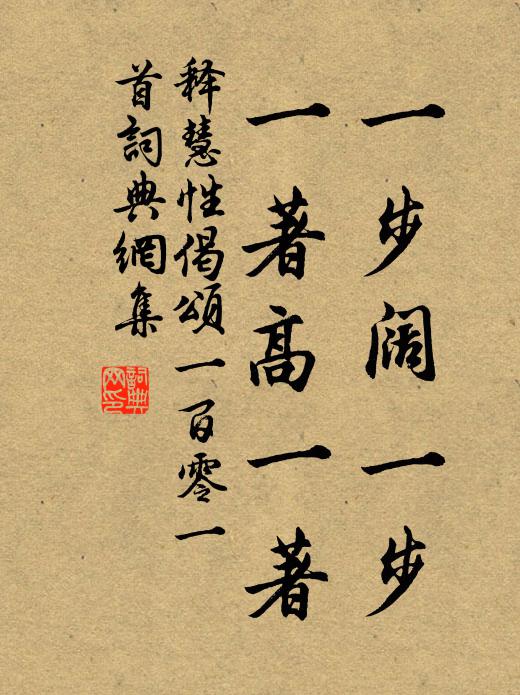 一步阔一步
一著高一著
释慧性偈頌一百零一
首詞典網集
詞典网印